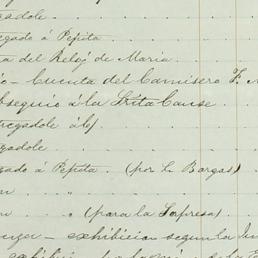 egadole
egado á Pepita
a del Reloj de Maria
o - Cuenta del Camisero F.
bsequio á la Srita Cause
tregadole á
egadole
gado á Pepita (por L. Bargas)
"
" (para la Sorpresa)
exhibicion segun la